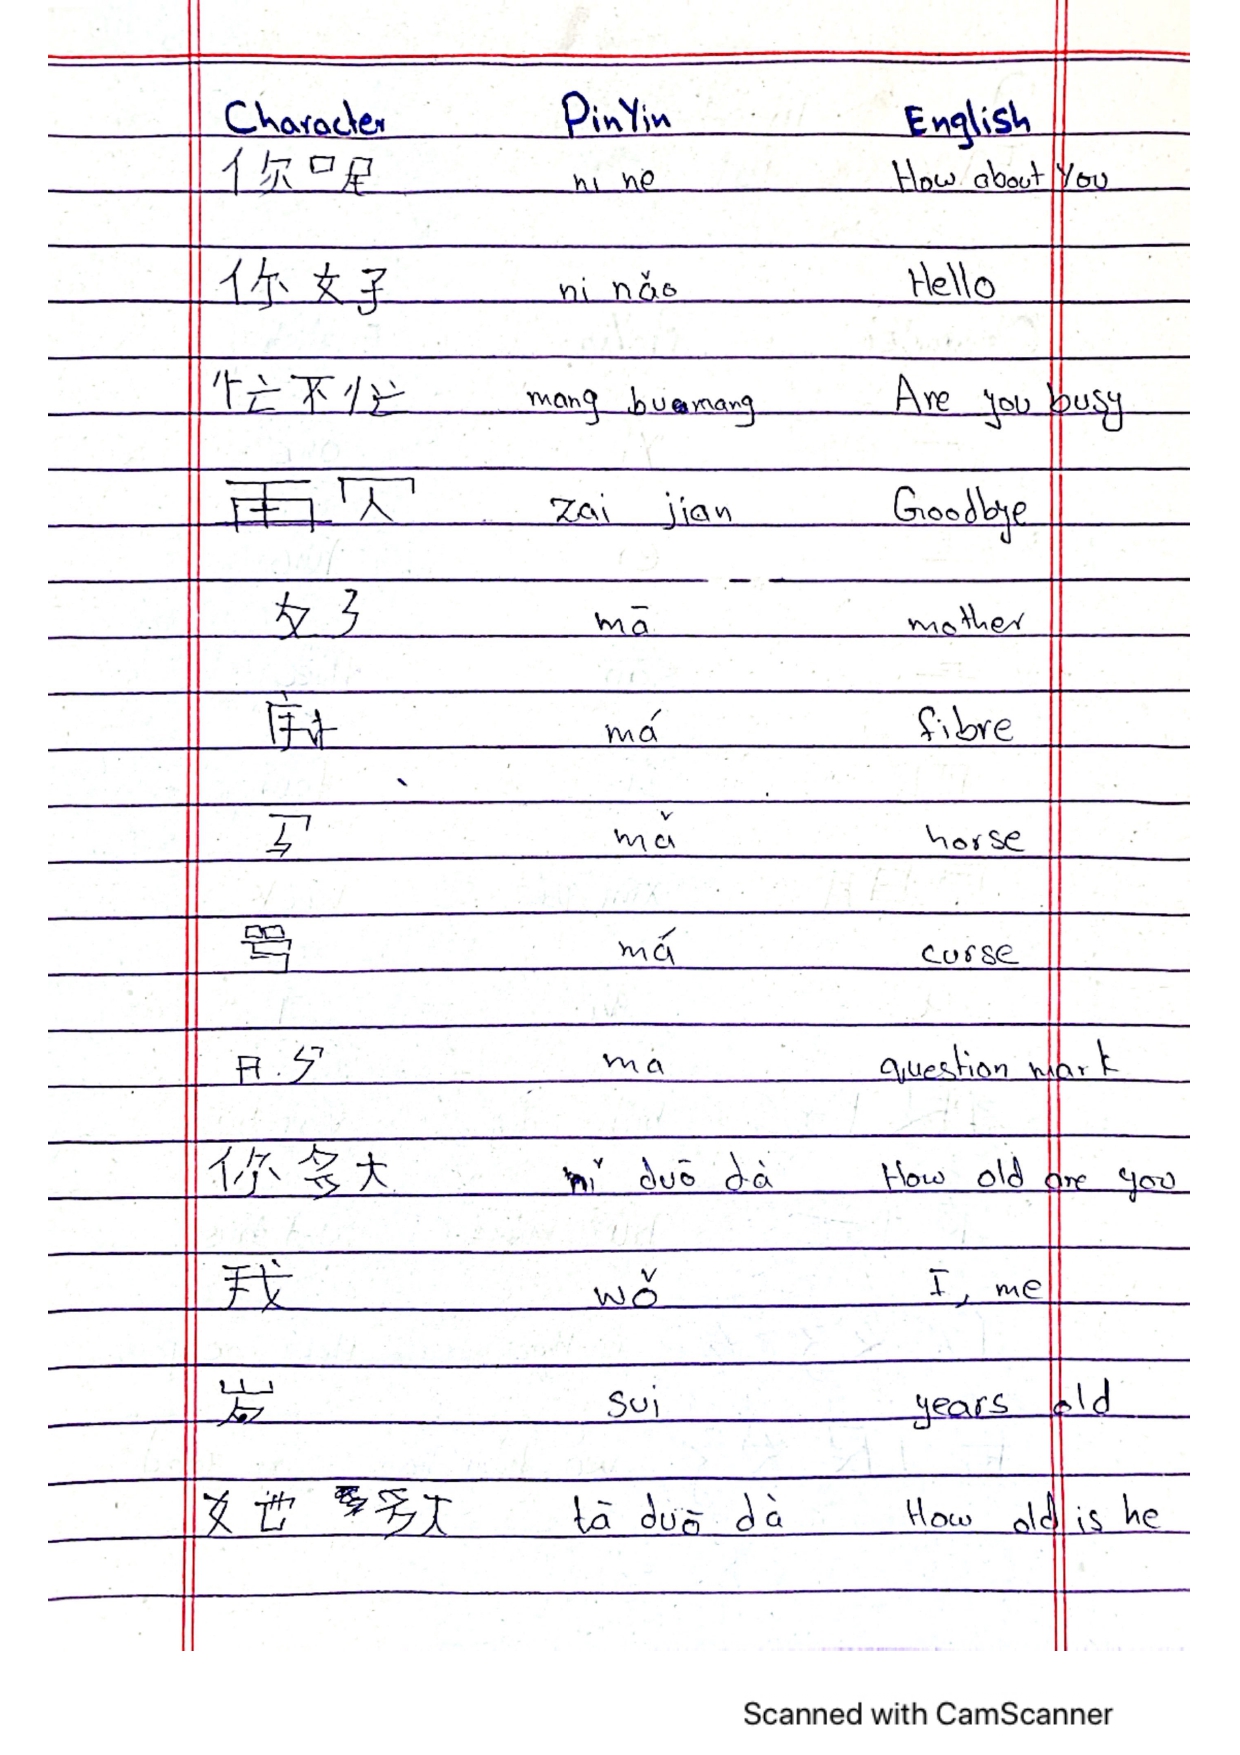 Character PinYin English
你呢 ni ne How about You
你好 ni năo Hello
忙不忙 mang bumang Are you busy
再见 zai jian Goodbye
妈 mā mother
麻 má fibre
马 mǎ horse
骂 má curse
吗 ma question mark
你多大 nǐ duō dà How old are you
我 wǒ I, me
岁 sui years old
她多大 tā duō dà How old is he
Scanned with CamScanner